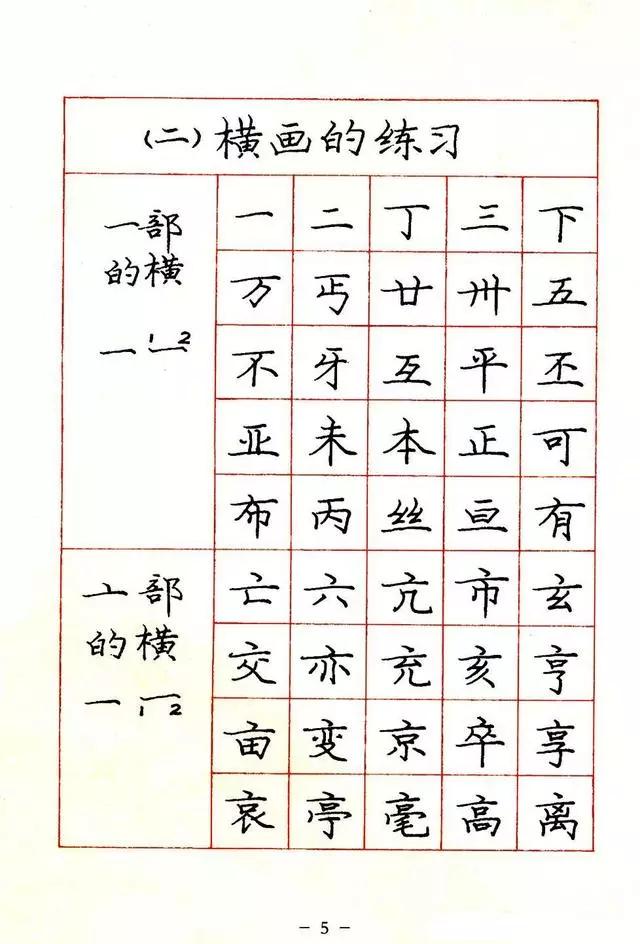 (二)横画的练习
一部
的横
一 1 2
一 二 丁 三 下
万 丐 廿 卅 五
不 牙 互 平 丕
亚 未 本 正 可
布 丙 丝 亘 有
亠部
的横
一 1 2
亡 六 亢 市 玄
交 亦 充 亥 亨
亩 变 京 卒 享
哀 亭 毫 高 离
- 5 -